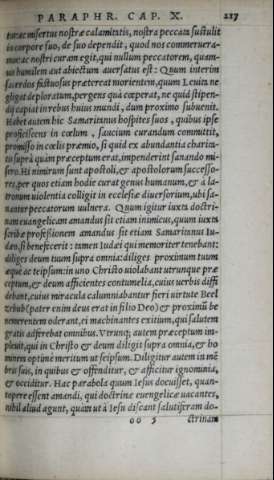 PARAPHR. CAP. X. 217
turæ misertus nostræ calamitatis, nostra peccata sustulit
in corpore suo, de suo dependit, quod nos commerueramus:
ac nostri curam egit, qui nullum peccatorem, quamuis
humilem aut abiectum auersatus est: Quum interim
sacerdos fastuosus prætereat morientem, quum Leuita negligat
deploratum, pergens quà cœperat, ne quid stipendij
capiat in rebus huius mundi, dum proximo subuenit.
Habet autem hic Samaritanus hospites suos, quibus ipse
proficiscens in cœlum, saucium curandum committit,
promisso in cœlis præmio, si quid ex abundantia charitatis
supra quàm præceptum erat, impenderint sanando misero.
Hi nimirum sunt apostoli, & apostolorum successores,
per quos etiam hodie curat genus humanum, & à latronum
uiolentia colligit in ecclesiæ diuersorium, ubi sanantur
peccatorum uulnera. Quum igitur iuxta doctrinam
euangelicam amandus sit etiam inimicus, quum iuxta
scribæ professionem amandus sit etiam Samaritanus Iudæo,
si benefecerit: tamen Iudæi qui memoriter tenebant:
diliges deum tuum supra omnia: diliges proximum tuum
æque ac teipsum: in uno Christo uiolabant utrunque præceptum,
& deum afficientes contumelia, cuius uerbis diffidebant,
cuius miracula calumniabantur fieri uirtute Beelzebub
(pater enim deus erat in filio Deo) & proximū bene
merentem oderant, ei machinantes exitium, qui salutem
gratis adferebat omnibus. Vtrunque autem præceptum impleuit,
qui in Christo & deum diligit supra omnia, & hominem
optime meritum ut seipsum. Diligitur autem in mēbris
suis, in quibus & offenditur, & afficitur ignominia,
& occiditur. Hac parabola quum Iesus docuisset, quantopere
essent amandi, qui doctrinæ euengelicæ uacantes,
nihil aliud agunt, quàm ut à Iesu discant salutiferam do-
oo 5 ctrinam